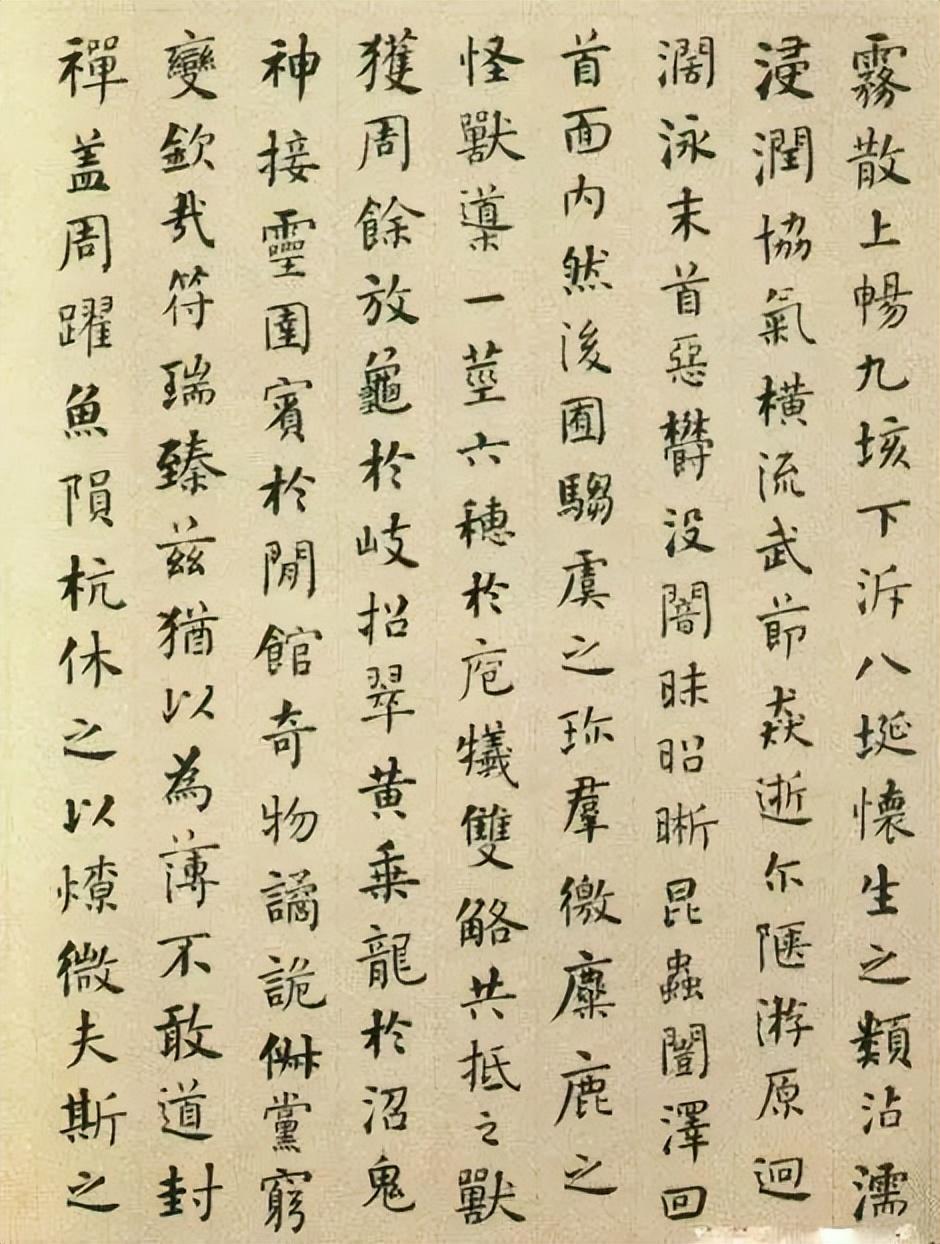 霧散上暢九垓下泝八埏懷生之類沾濡
浸潤協氣橫流武莭猋逝尒陿游原迥
濶泳末首惡欝没闇昧昭晰昆蟲闓澤回
首面内然後囿騶虞之珎羣徼麋鹿之
怪獸䆃一莖六穗於庖犧雙觡共抵之獸
獲周餘放龜於岐招翠黄乗龍於沼鬼
神接靈圉賓於閒館奇物譎詭俶儻窮
變欽㦲符瑞臻兹猶以為薄不敢道封
禪盖周躍魚隕杭休之以燎微夫斯之